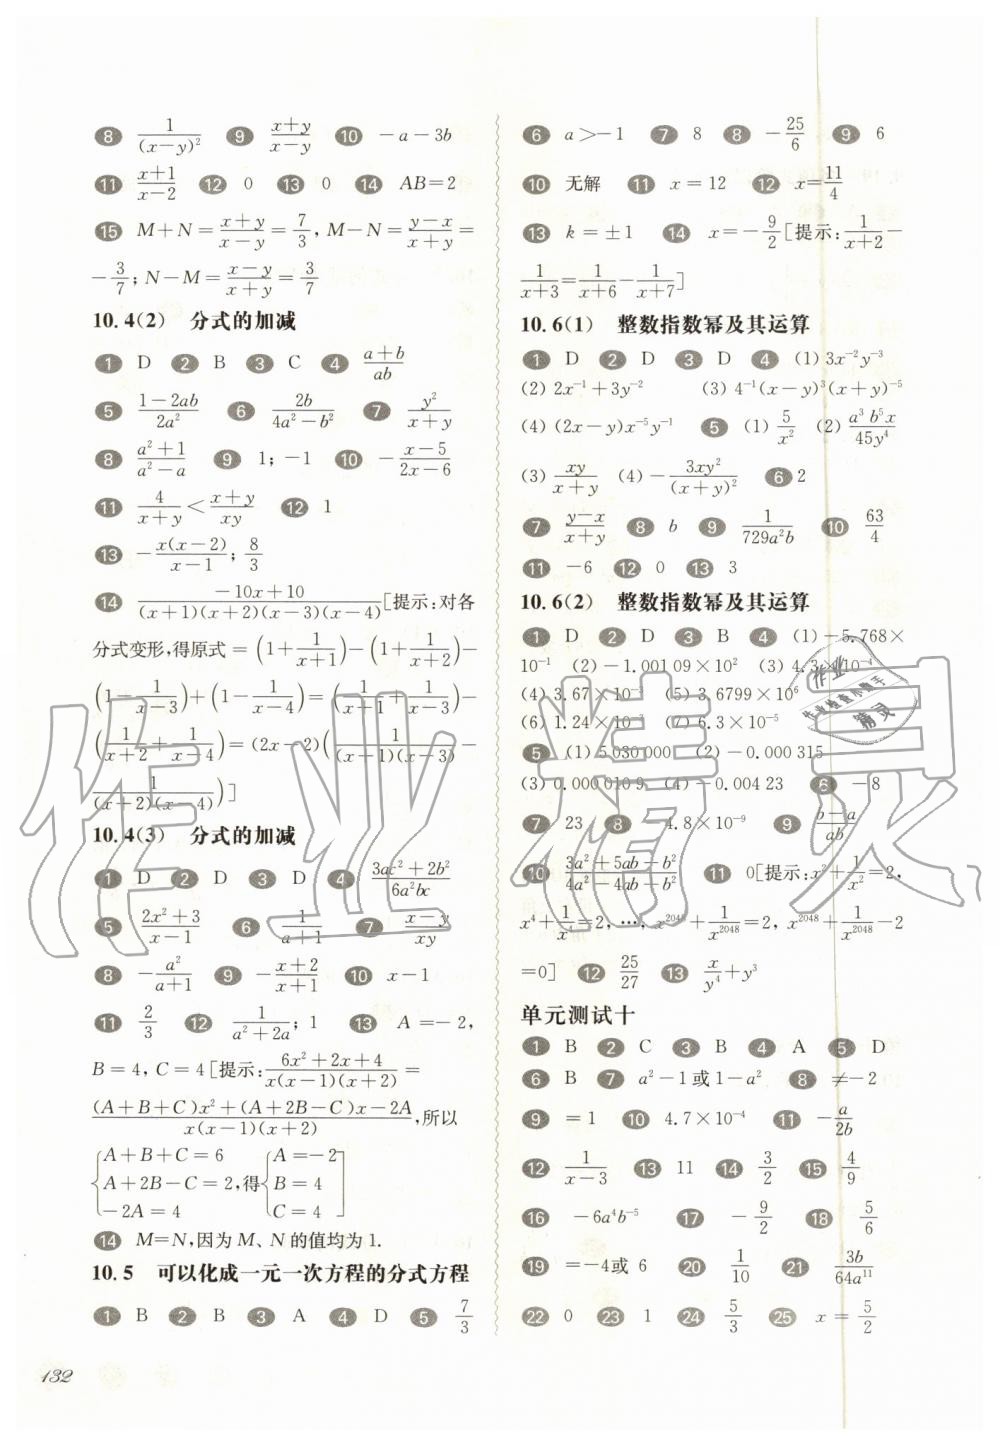 8 1/(x-y)² 9 (x+y)/(x-y) 10 -a-3b
11 (x+1)/(x-2) 12 0 13 0 14 AB=2
15 M+N=(x+y)/(x-y)=7/3, M-N=(y-x)/(x+y)=
-3/7; N-M=(x-y)/(x+y)=3/7
10.4(2) 分式的加减
1 D 2 B 3 C 4 (a+b)/ab
5 (1-2ab)/2a² 6 2b/(4a²-b²) 7 y²/(x+y)
8 (a²+1)/(a²-a) 9 1; -1 10 -(x-5)/(2x-6)
11 4/(x+y)<(x+y)/xy 12 1
13 -x(x-2)/(x-1); 8/3
14 (-10x+10)/((x+1)(x+2)(x-3)(x-4))[提示:对各
分式变形,得原式=(1+1/(x+1))-(1+1/(x+2))-
(1-1/(x-3))+(1-1/(x-4))=(1/(x+1)+1/(x-3))-
(1/(x+2)+1/(x-4))=(2x-2)(1/((x+1)(x-3))-
1/((x+2)(x-4)))]
10.4(3) 分式的加减
1 D 2 D 3 D 4 (3ac²+2b²)/6a²bc
5 (2x²+3)/(x-1) 6 1/(a+1) 7 (x-y)/xy
8 -a²/(a+1) 9 -(x+2)/(x+1) 10 x-1
11 2/3 12 1/(a²+2a); 1 13 A=-2,
B=4, C=4[提示:(6x²+2x+4)/(x(x-1)(x+2))=
((A+B+C)x²+(A+2B-C)x-2A)/(x(x-1)(x+2)),所以
{A+B+C=6 {A=-2
A+2B-C=2,得 B=4
-2A=4 C=4]
14 M=N,因为M、N的值均为1.
10.5 可以化成一元一次方程的分式方程
1 B 2 B 3 A 4 D 5 7/3
132
6 a>-1 7 8 8 -25/6 9 6
10 无解 11 x=12 12 x=11/4
13 k=±1 14 x=-9/2[提示:1/(x+2)-
1/(x+3)=1/(x+6)-1/(x+7)]
10.6(1) 整数指数幂及其运算
1 D 2 D 3 D 4 (1)3x⁻²y⁻³
(2)2x⁻¹+3y⁻² (3)4⁻¹(x-y)³(x+y)⁻⁵
(4)(2x-y)x⁻⁵y⁻¹ 5 (1)5/x² (2)a³b⁵x/45y⁴
(3)xy/(x+y) (4)-3xy²/(x+y)² 6 2
7 (y-x)/(x+y) 8 b 9 1/729a²b 10 63/4
11 -6 12 0 13 3
10.6(2) 整数指数幂及其运算
1 D 2 D 3 B 4 (1)-5.768×
10⁻¹ (2)-1.001 09×10² (3)4.3×10⁻⁴
(4)3.67×10 (5)3.6799×10⁶
(6)1.24×10 (7)6.3×10⁻⁵
5 (1)5 030 000 (2)-0.000 315
(3)0.000 010 9 (4)-0.004 23 6 -8
7 23 8 4.8×10⁻⁹ 9 (b-a)/ab
10 (3a²+5ab-b²)/(4a²-4ab-b²) 11 0[提示:x²+1/x²=2,
x⁴+1/x⁴=2, …, x²⁰⁴⁸+1/x²⁰⁴⁸=2, x²⁰⁴⁸+1/x²⁰⁴⁸-2
=0] 12 25/27 13 x/y⁴+y³
单元测试十
1 B 2 C 3 B 4 A 5 D
6 B 7 a²-1或1-a² 8 ≠-2
9 =1 10 4.7×10⁻⁴ 11 -a/2b
12 1/(x-3) 13 11 14 3/2 15 4/9
16 -6a⁴b⁻⁵ 17 -9/2 18 5/6
19 =-4或6 20 1/10 21 3b/64a¹¹
22 0 23 1 24 5/3 25 x=5/2
作业精灵
作业
作业检查小助手
精灵